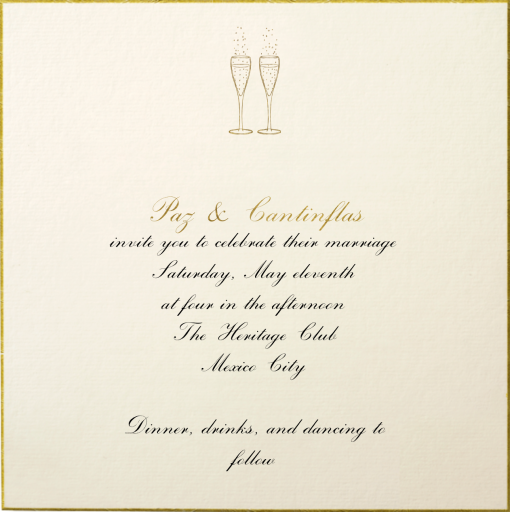 Paz & Cantinflas
invite you to celebrate their marriage
Saturday, May eleventh
at four in the afternoon
The Heritage Club
Mexico City
Dinner, drinks, and dancing to
follow